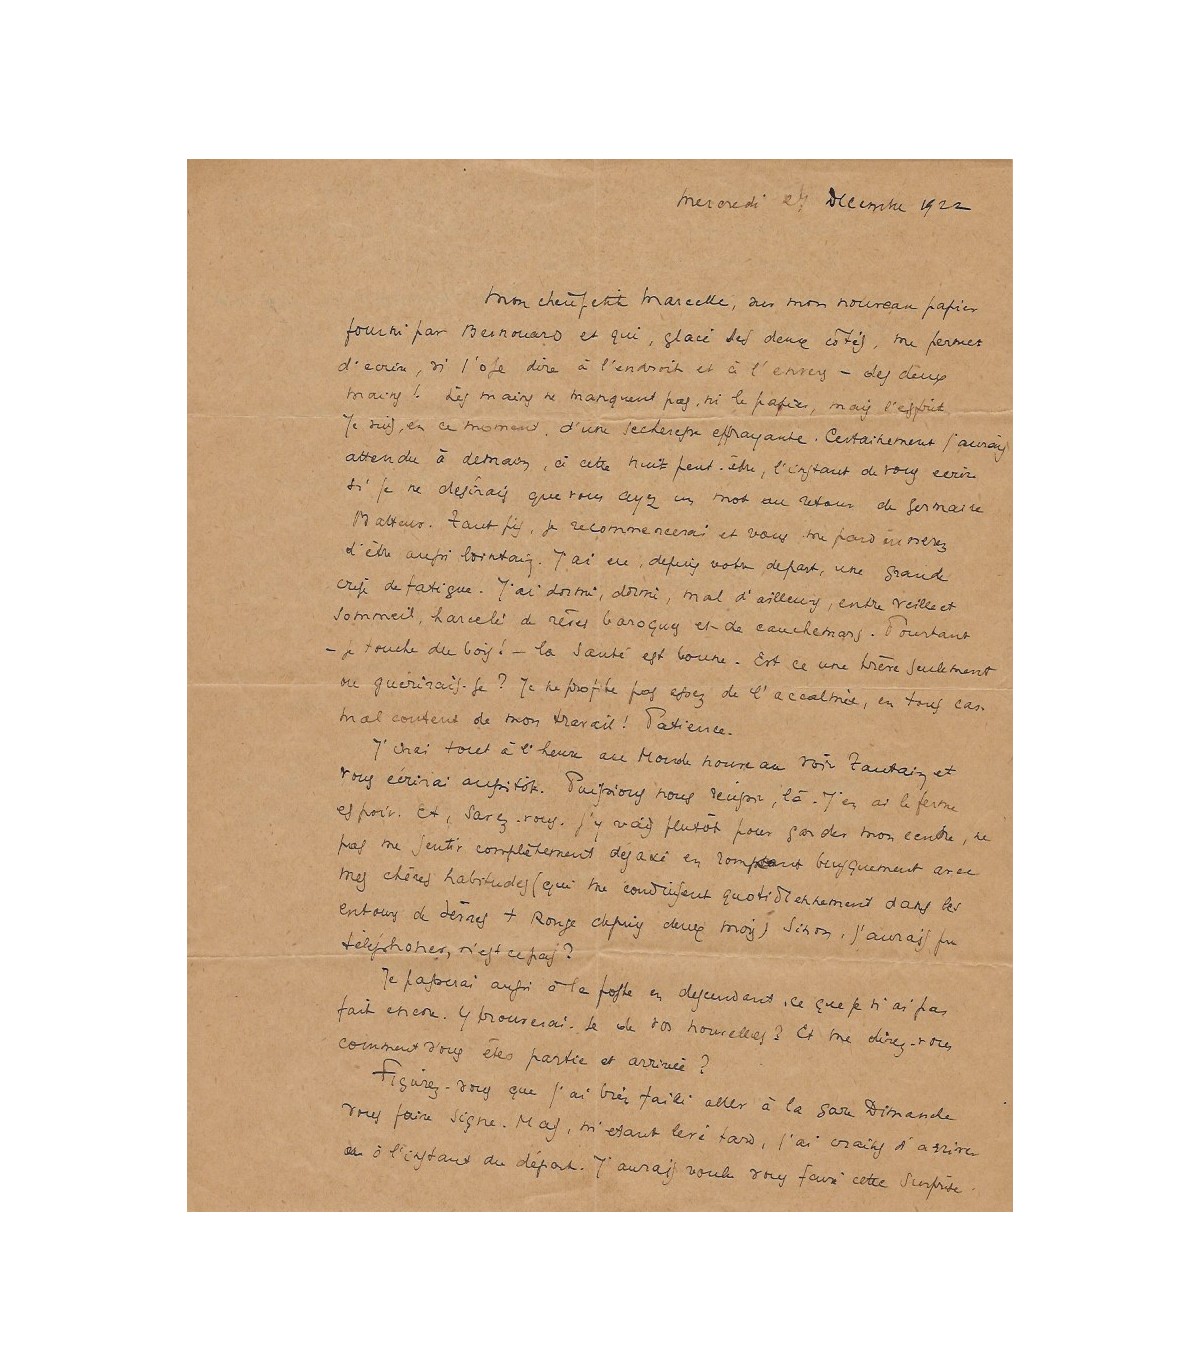 Mercredi 27 Décembre 1922
Mon chère petite Marcelle, sur mon nouveau papier
fourni par Bernouard et qui, glacé des deux côtés, me permet
d'écrire, si j'ose dire à l'endroit et à l'envers – des deux
mains! Les mains ne manquent pas, ni le papier, mais l'esprit.
Je suis, en ce moment, d'une sécheresse effrayante. Certainement j'aurais
attendu à demain, à cette nuit peut-être, l'instant de vous écrire
si je ne désirais que vous ayez un mot au retour de Germaine
Tant pis, je recommencerai et vous me pardonnerez
d'être aussi lointain. J'ai eu, depuis votre départ, une grande
crise de fatigue. J'ai dormi, dormi, mal d'ailleurs, entre veille et
sommeil, harcelé de rêves baroques et de cauchemars. Pourtant
– je touche du bois! – la santé est bonne. Est ce une trève seulement
ou guérirais-je? Je ne profite pas assez de l'accalmie, en tous cas.
mal content de mon travail! Patience.
J'irai tout à l'heure au Monde nouveau voir et
vous écrirai aussitôt. Puissions nous réussir, là. J'en ai le ferme
espoir. Et, savez-vous, j'y vais plutôt pour garder mon centre, ne
pas me sentir complètement désaxé en rompant brusquement avec
mes chères habitudes (qui me conduisent quotidiennement dans les
entours de + Rouge depuis deux mois) Sinon, j'aurais pu
téléphoner, n'est ce pas?
Je passerai aussi à la poste en descendant, ce que je n'ai pas
fait encore. Y trouverai-je de vos nouvelles? Et me direz-vous
comment vous êtes partie et arrivée?
Figurez-vous que j'ai bien failli aller à la gare Dimanche
vous faire signe. Mais, m'étant levé tard, j'ai craint d'arriver
à l'instant du départ. J'aurais voulu vous faire cette surprise.